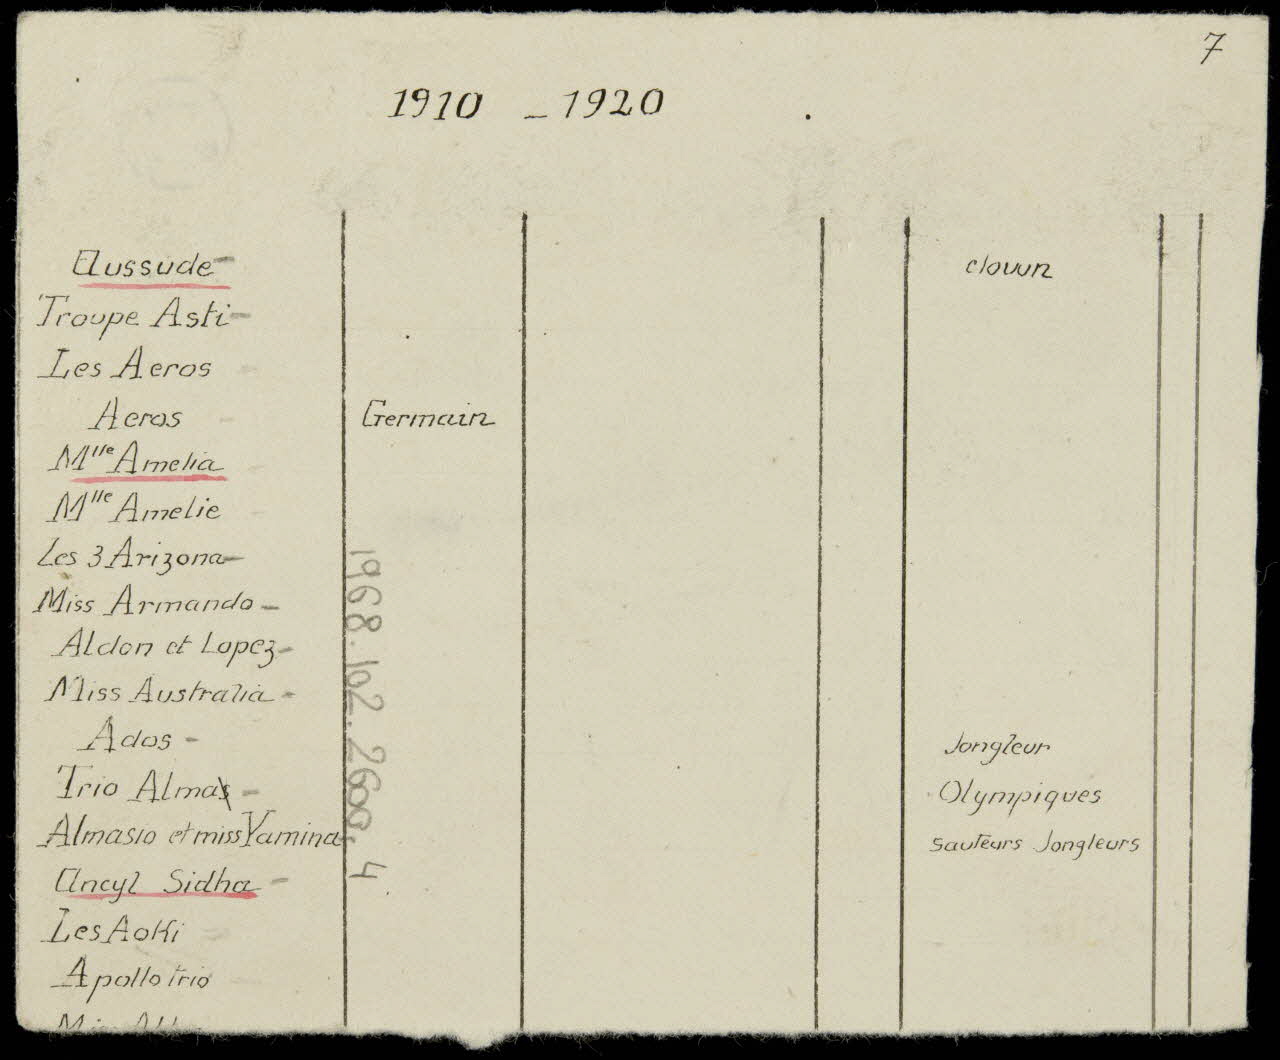 7
1910 - 1920
Aussude - clown
Troupe Asti -
Les Aeros -
Aeros - Germain
Mlle Amelia -
Mlle Amelie -
Les 3 Arizona -
Miss Armando -
Aldon et Lopez -
Miss Australia -
Ados - Jongleur
Trio Almas - Olympiques
Almasio et miss Yamina sauteurs Jongleurs
Ancyl Sidha -
Les Aoki -
Apollo trio -
1968.102.2600.4